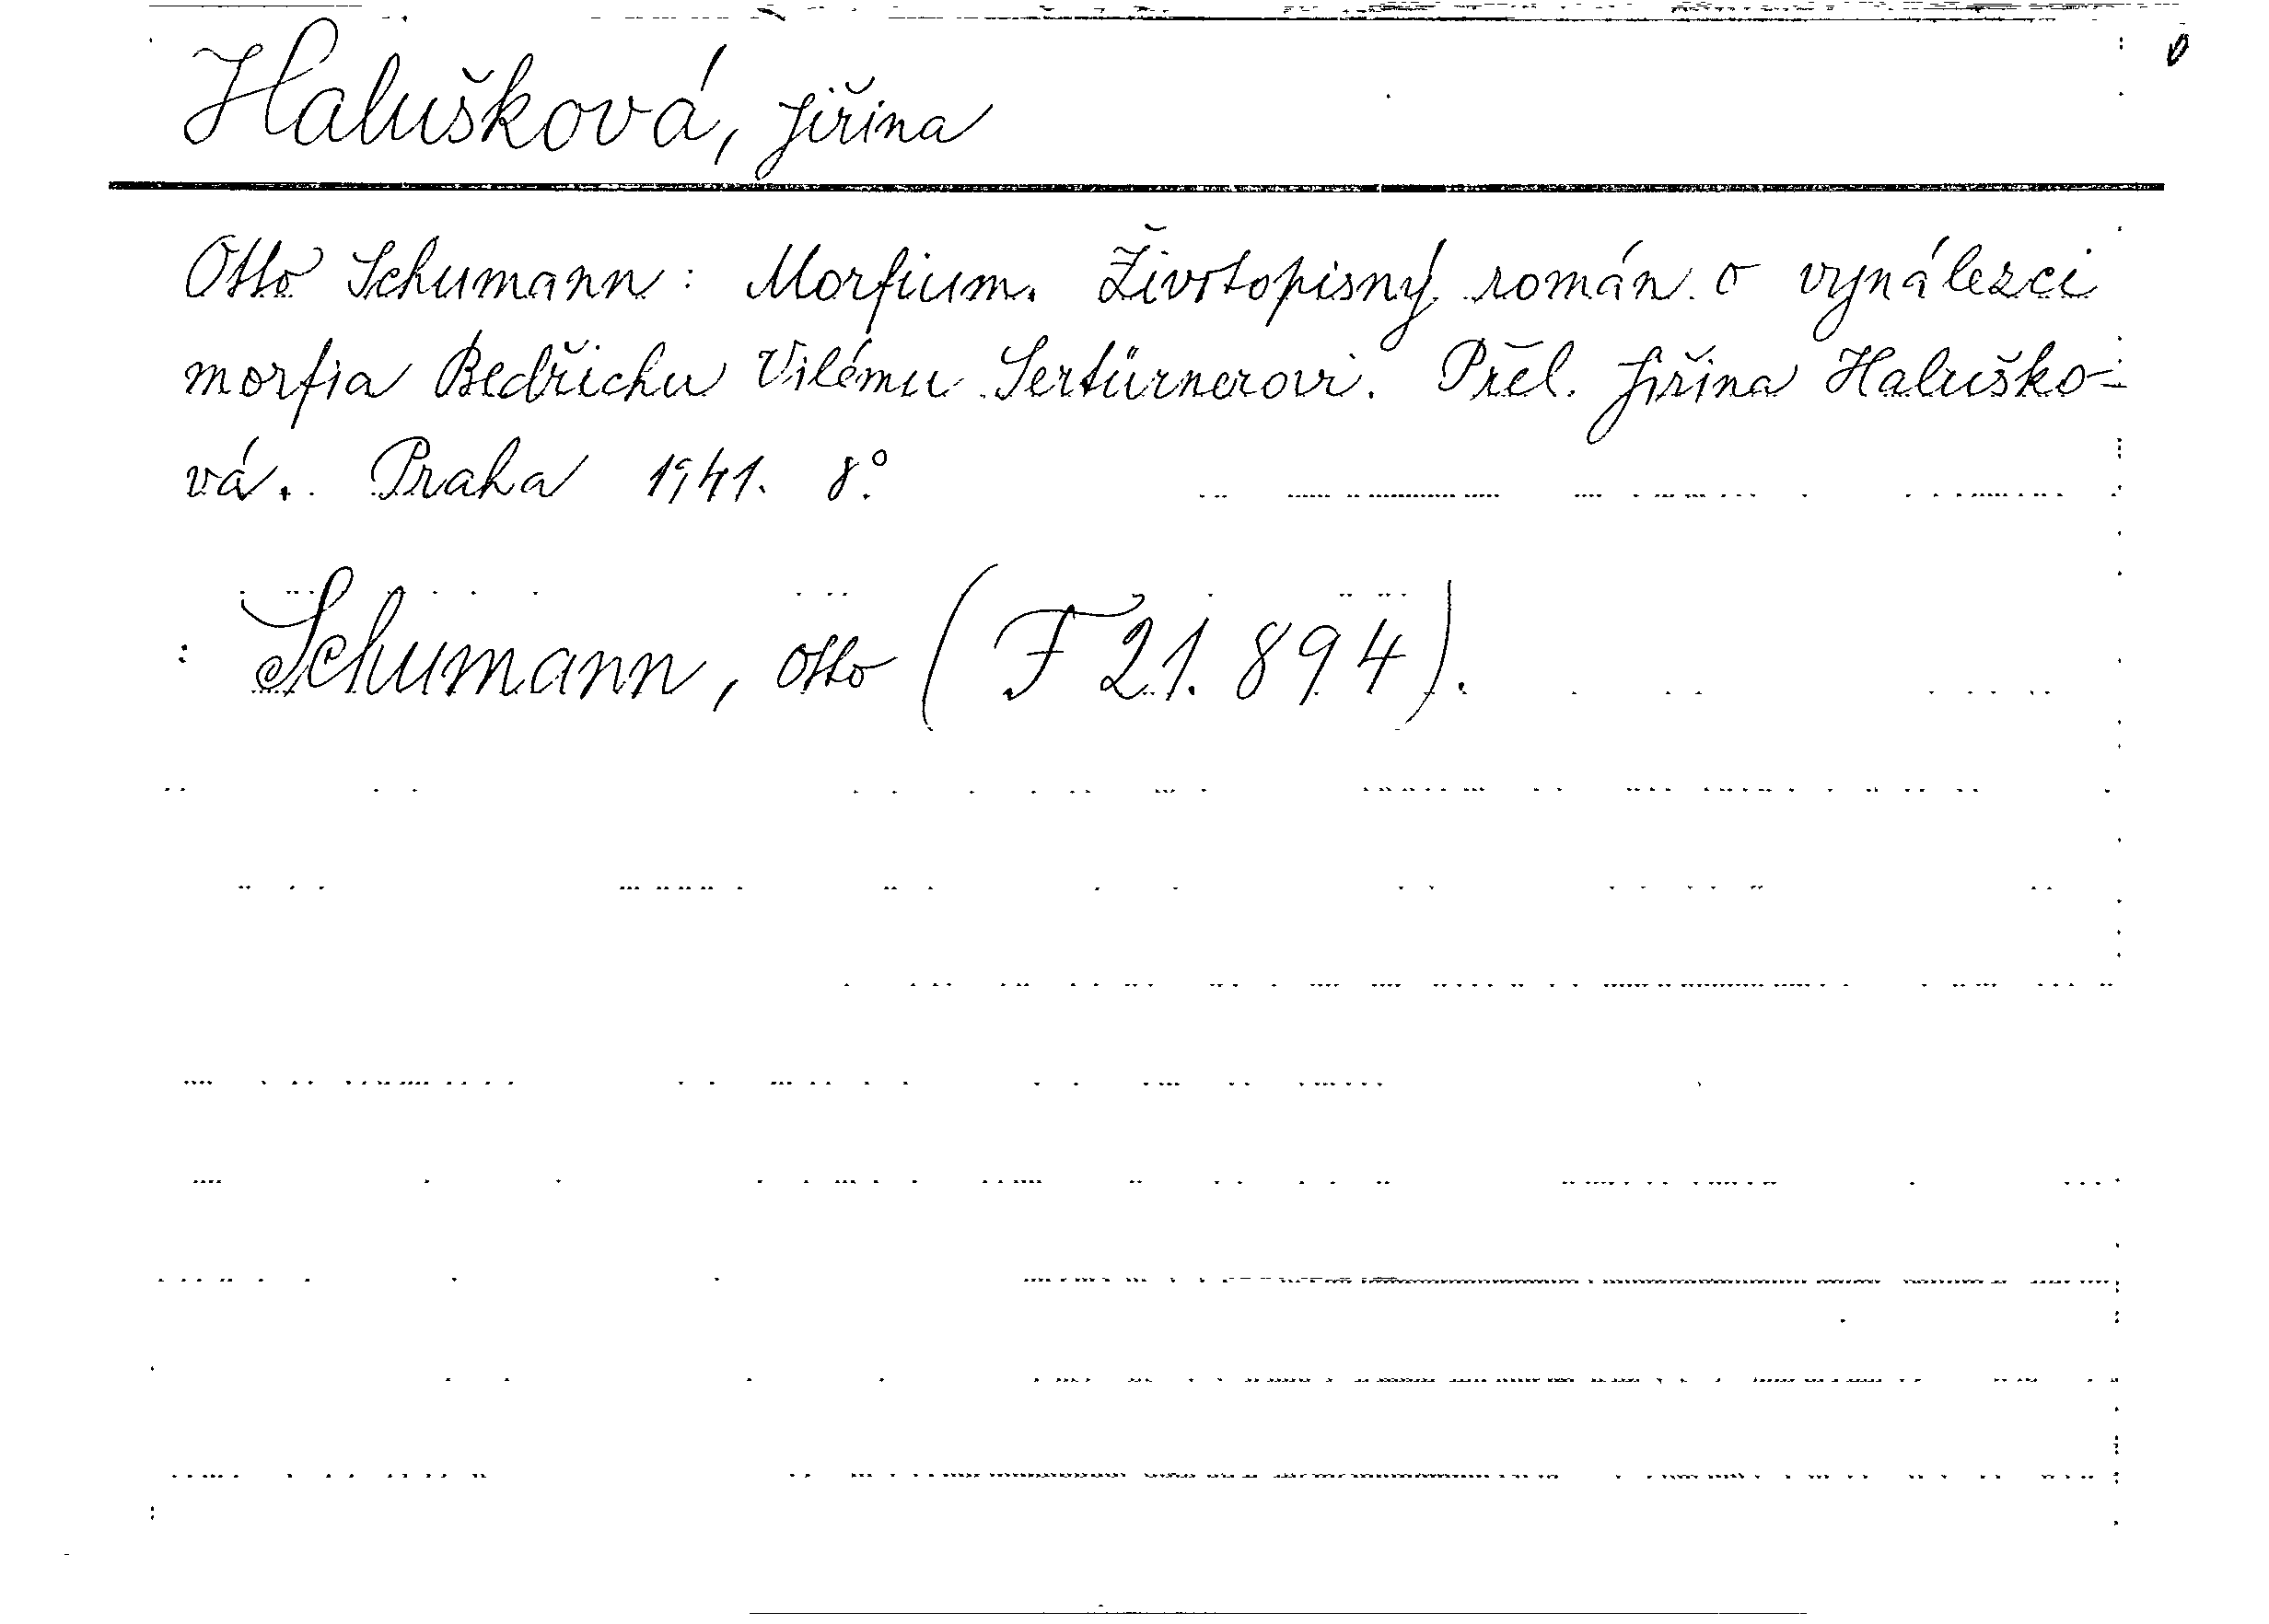 Halušková, Jiřina
Otto Schumann: Morfium. Životopisný román o vynálezci
morfia Bedřichu Vilému Sertürnerovi. Přel. Jiřina Haluško-
vá. Praha 1941. 8°.
Schumann, Otto (F 21.894).